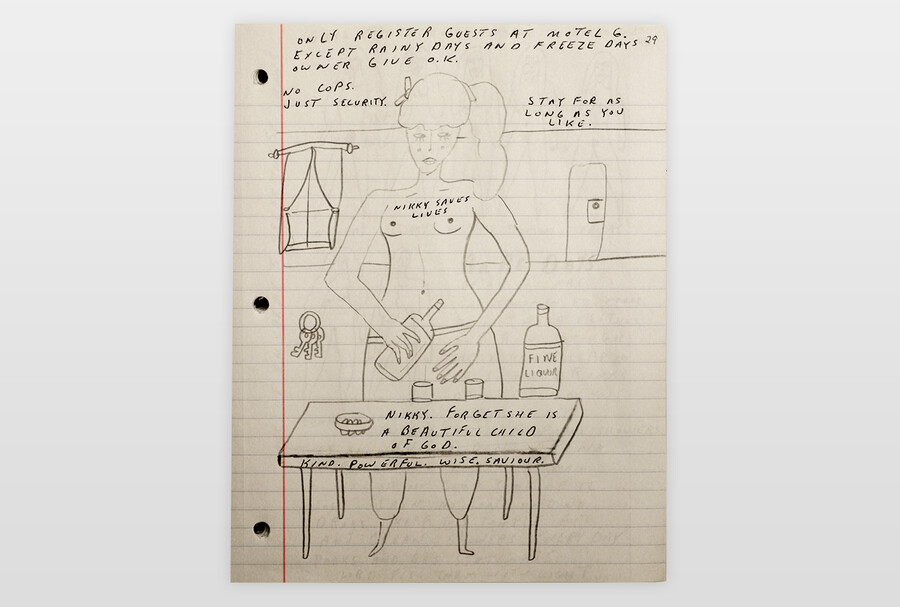 ONLY REGISTER GUESTS AT MOTEL 6.
EXCEPT RAINY DAYS AND FREEZE DAYS 29
OWNER GIVE O.K.
NO COPS.
JUST SECURITY.
STAY FOR AS
LONG AS YOU
LIKE.
NIKKY SAVES
LIVES
FINE
LIQUOR
NIKKY. FORGET SHE IS
A BEAUTIFUL CHILD
OF GOD.
KIND. POWERFUL. WISE. SAVIOUR.